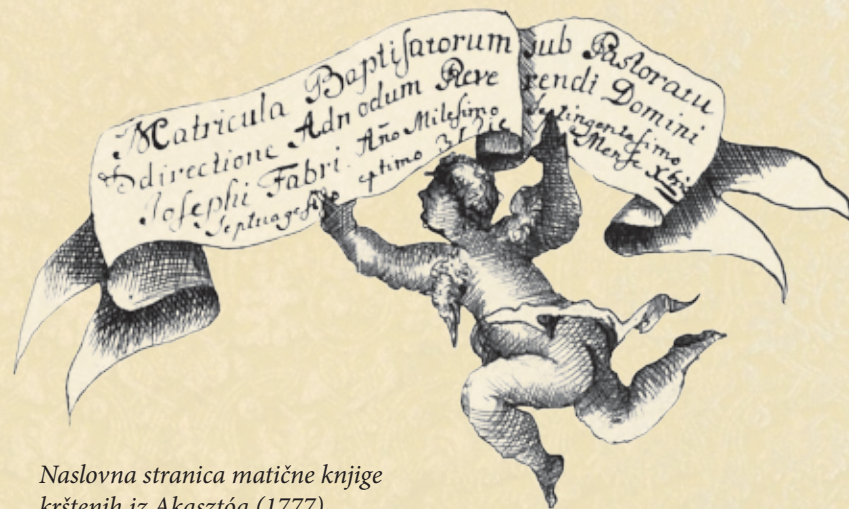 Matricula Baptisatorum sub Pastoratu
Directione Admodum Reverendi Domini
Josephi Fabri. Año Milesimo Septingentesimo
Septuagesimo eptimo 31 Die Mense Xbris
Naslovna stranica matične knjige
krštenih iz Akasztóa (1777)